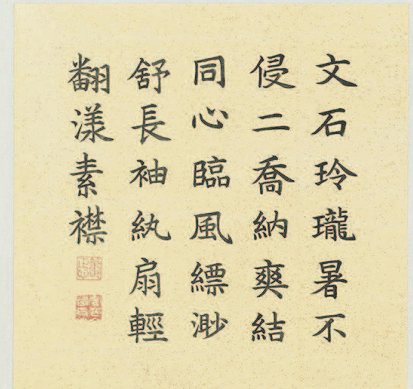 文石玲瓏暑不
侵二喬納爽結
同心臨風縹渺
舒長袖紈扇輕
翻漾素襟